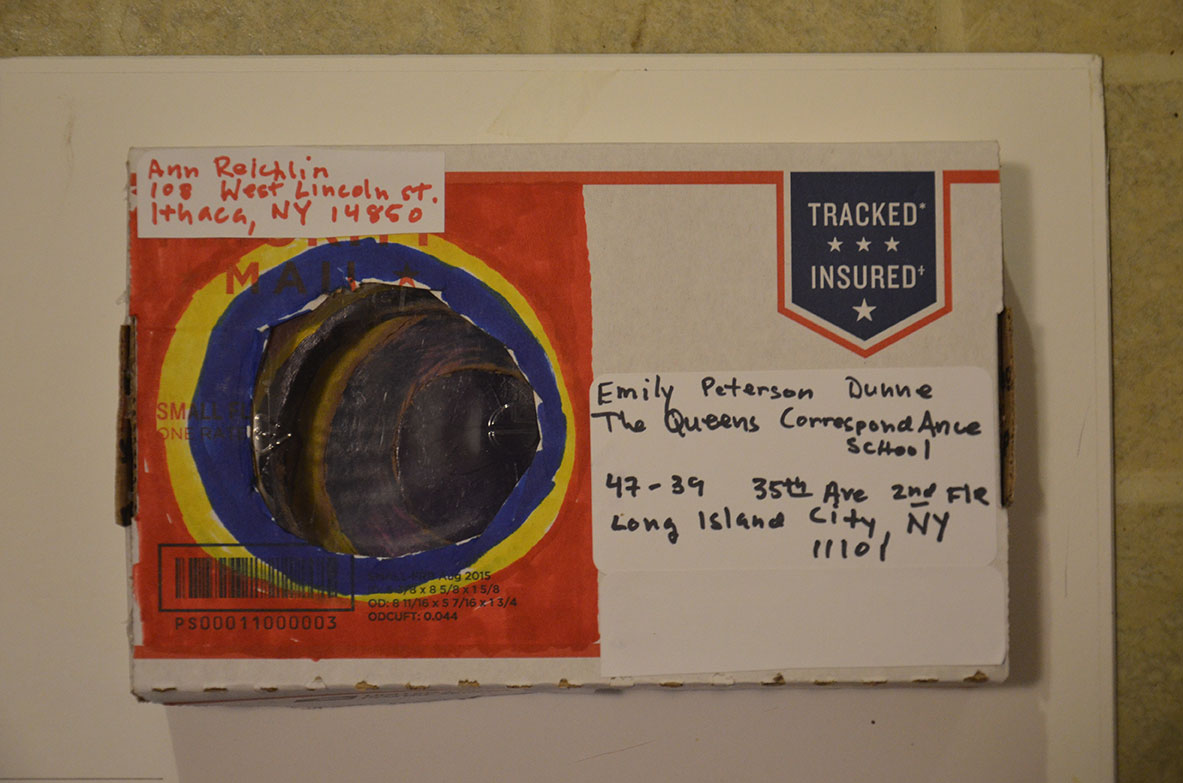 Ann Reichlin
108 West Lincoln st.
Ithaca, NY 14850
MAIL
SMALL
ONE RA
PS00011000003
Aug 2015
8 5/8 x 1 5/8
OD: 8 11/16 x 5 7/16 x 1 3/4
ODCUFT: 0.044
TRACKED*
INSURED†
Emily Peterson Dunne
The Queens CorrespondAnce
School
47-39 35th Ave 2nd FlR
Long Island City, NY
11101